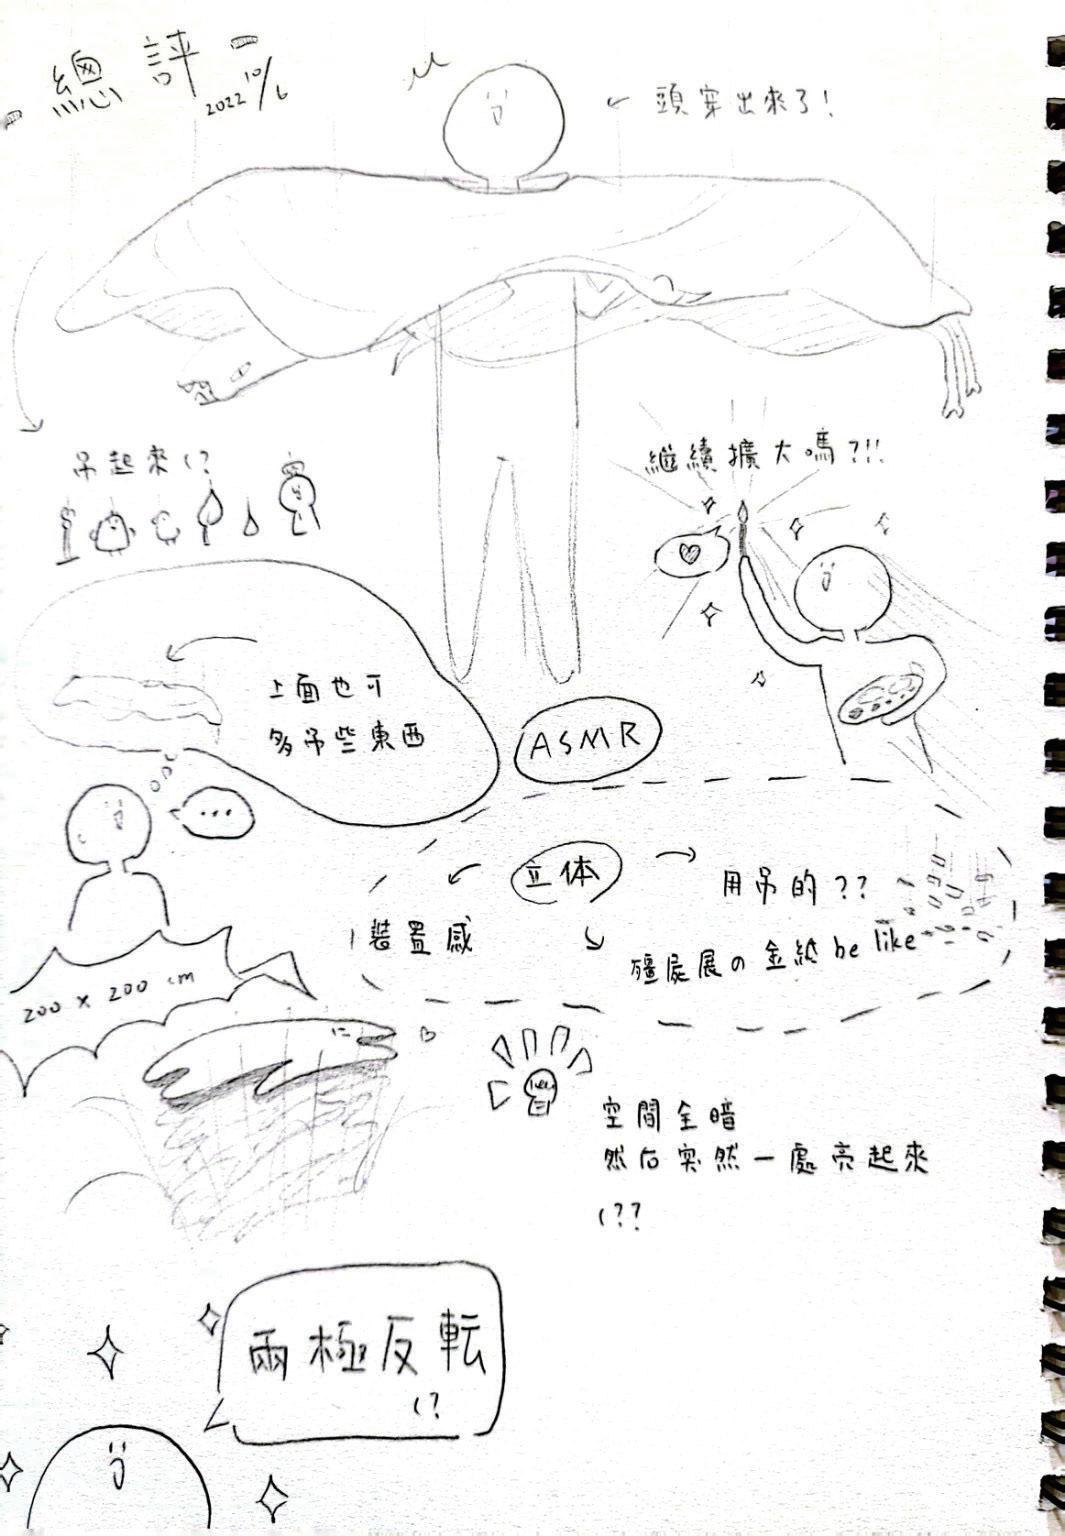 -總評-
2022 10/6
頭穿出來了!
吊起來(?
繼續擴大嗎?!!
上面也可
多吊些東西
ASMR
...
立体
用吊的??
裝置感
殭屍展の金紙be like
200 x 200 cm
空間全暗
然后突然一處亮起來
(??
兩極反転
(?